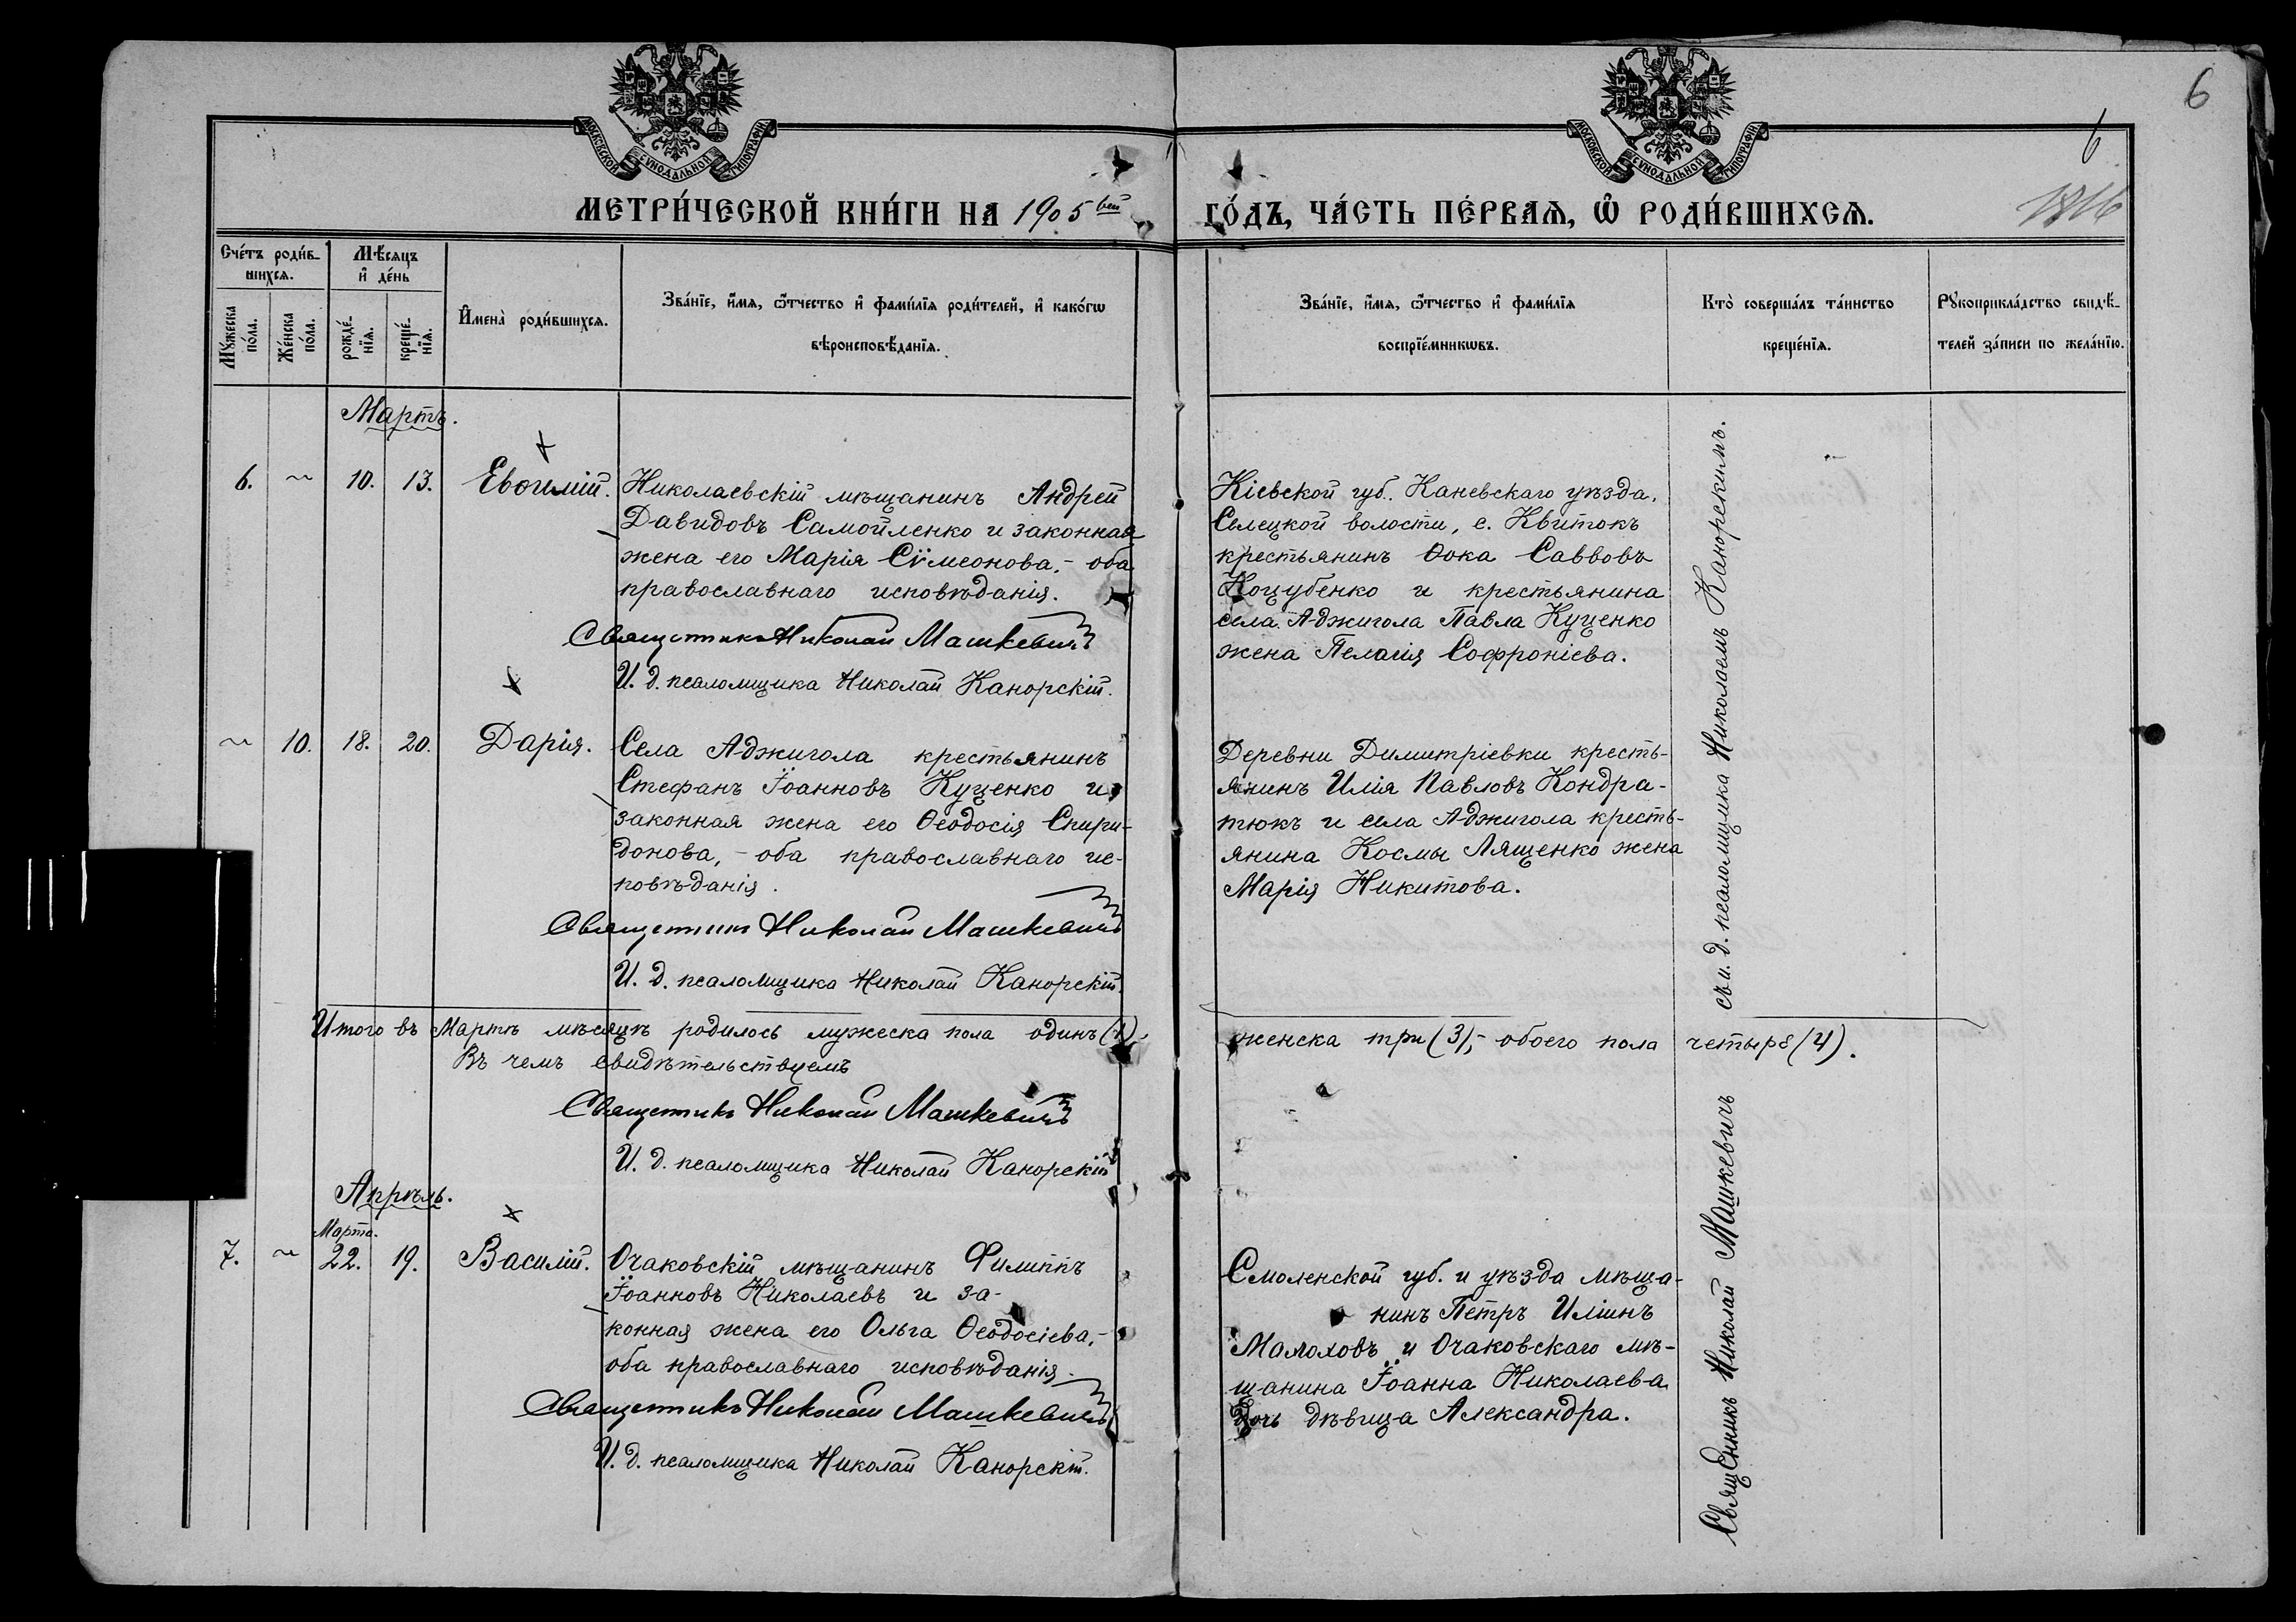 МОСКОВСКОЙ СѴНОДАЛЬНОЙ ТИПОГРАФІИ
МОСКОВСКОЙ СѴНОДАЛЬНОЙ ТИПОГРАФІИ
6
6
1816
МЕТРИ́ЧЕСКОЙ КНИ́ГИ НА 1905вый
ГО́ДЪ, ЧА́СТЬ ПЕ́РВАѦ, Ѡ҆ РОДИ́ВШИХСѦ.
Сче́тъ роди́в-
шихсѧ.
Мꙋ́жеска по́ла.
Же́нска по́ла.
Мѣ́сѧцъ
и҆ де́нь
рожде́-
нїѧ.
креще́-
нїѧ.
И҆мена̀ роди́вшихсѧ.
Зва́нїе, и҆́мѧ, ѻ҆́тчество и҆ фами́лїѧ роди́телей, и҆ како́гѡ
вѣроисповѣ́данїѧ.
Зва́нїе, и҆́мѧ, ѻ҆́тчество и҆ фами́лїѧ
воспрїе́мникѡвъ.
Кто̀ соверша́лъ та́инство
креще́нїѧ.
Рꙋкоприкла́дство свидѣ́-
телей за́писи по жела́нїю.
Мартъ.
6. ~ 10. 13. Евѳимій.
Николаевскій мѣщанинъ Андрей
Давидовъ Самойленко и законная
жена его Марія Сѷмеонова, - оба
православнаго исповѣданія.
Священникъ Николай Машкевичъ
И. д. псаломщика Николай Канорскій.
Кіевской губ. Каневскаго уѣзда,
Селецкой волости, с. Квитокъ
крестьянинъ Ѳока Саввовъ
Коцубенко и крестьянина
села Аджигола Павла Куценко
жена Пелагія Софроніева.
~ 10. 18. 20. Дарія.
Села Аджигола крестьянинъ
Стефанъ Іоанновъ Куценко и
законная жена его Ѳеодосія Спири-
донова, - оба православнаго ис-
повѣданія.
Священникъ Николай Машкевичъ
И. д. псаломщика Николай Канорскій.
Деревни Димитріевки кресть-
янинъ Илія Павловъ Кондра-
тюкъ и села Аджигола кресть-
янина Космы Лященко жена
Марія Никитова.
Итого въ Мартѣ мѣсяцѣ родилось мужеска пола одинъ (1),
женска три (3), - обоего пола четыре (4).
Въ чемъ свидѣтельствуемъ
Священникъ Николай Машкевичъ
И. д. псаломщика Николай Канорскій
Апрѣль.
Марта.
7. ~ 22. 19. Василій.
Очаковскій мѣщанинъ Филиппъ
Іоанновъ Николаевъ и за-
конная жена его Ольга Ѳеодосіева, -
оба православнаго исповѣданія.
Священникъ Николай Машкевичъ
И. д. псаломщика Николай Канорскій.
Смоленской губ. и уѣзда мѣща-
нинъ Петръ Иліинъ
Малоховъ и Очаковскаго мѣ-
щанина Іоанна Николаева
дочь дѣвица Александра.
Священникъ Николай Машкевичъ
съ и. д. псаломщика Николаемъ Канорскимъ.